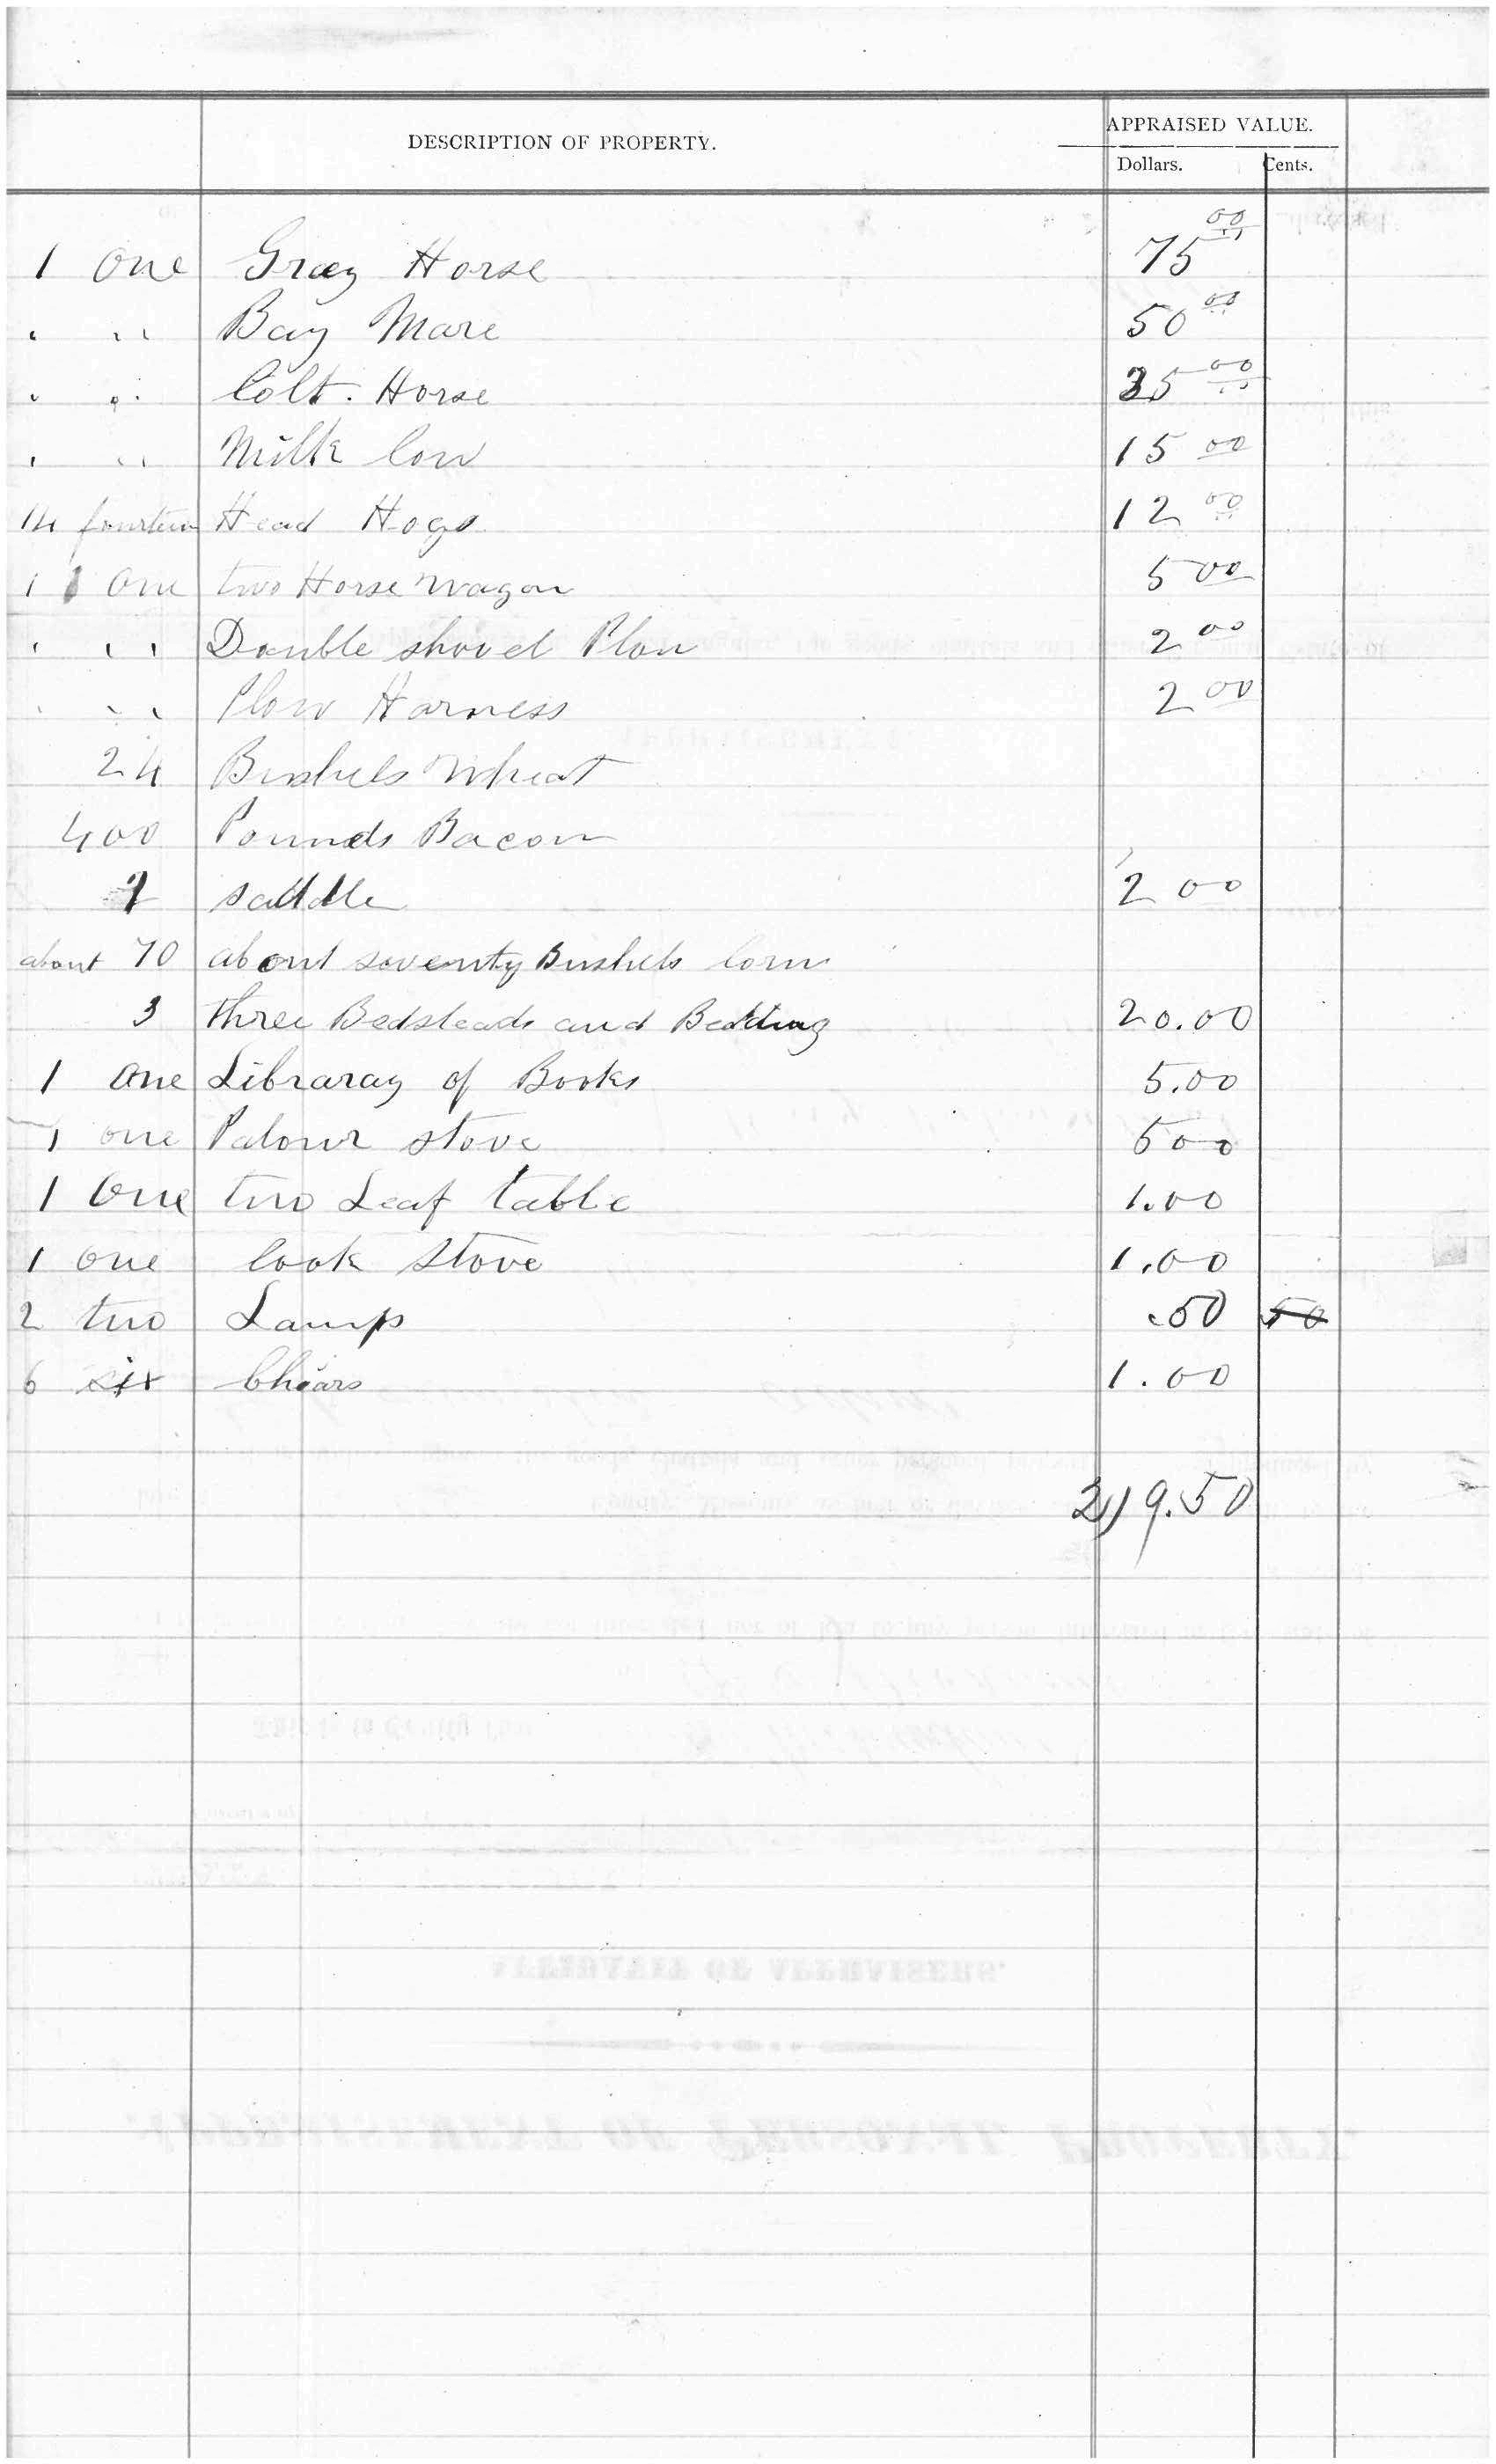 DESCRIPTION OF PROPERTY.
APPRAISED VALUE.
Dollars. Cents.
1 One Gray Horse 75 00
" " Bay Mare 50 00
" " Colt. Horse 25 00
" " Milk Cow 15 00
14 fourteen Head Hogs 12 00
1 One two Horse Wagon 5 00
" " Double shovel Plow 2 00
" " Plow Harness 2 00
24 Bushels Wheat
400 Pounds Bacon
1 saddle 2 00
about 70 about seventy Bushels Corn
3 three Bedsteads and Bedding 20.00
1 One Libraray of Books 5.00
1 one Palour stove 5 00
1 One two Leaf table 1.00
1 one Cook Stove 1.00
2 two Lamps .50 50
6 six Chiars 1.00
219.50